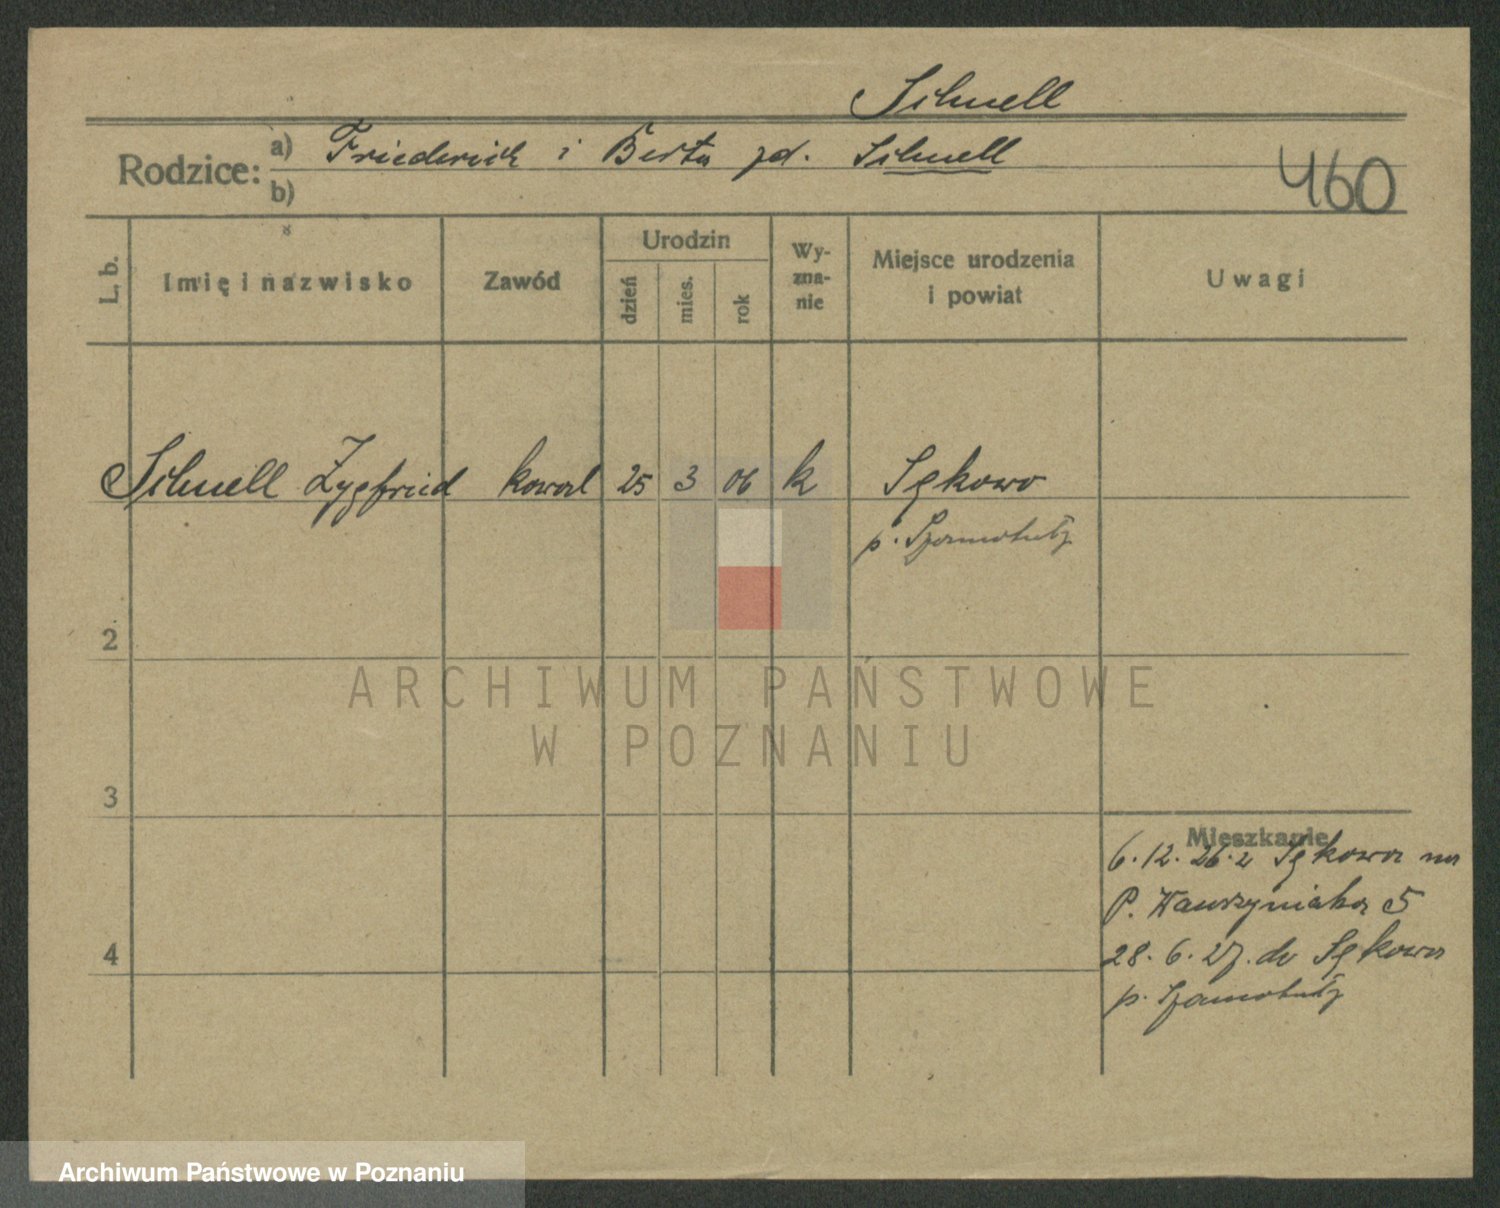 Schnell
Rodzice: a) Friederick i Berta zd. Schnell
b)
460
L. b. Imię i nazwisko Zawód Urodzin dzień mies. rok Wy-zna-nie Miejsce urodzenia i powiat Uwagi
Schnell Zygfried kowal 25 3 06 k Sękowo
p. Szamotuły
2
ARCHIWUM PAŃSTWOWE
W POZNANIU
3
Mieszkanie
6. 12. 26. z Sękowa na
P. Wawrzyniaka 5
4
28. 6. 27. do Sękowa
p. Szamotuły
Archiwum Państwowe w Poznaniu